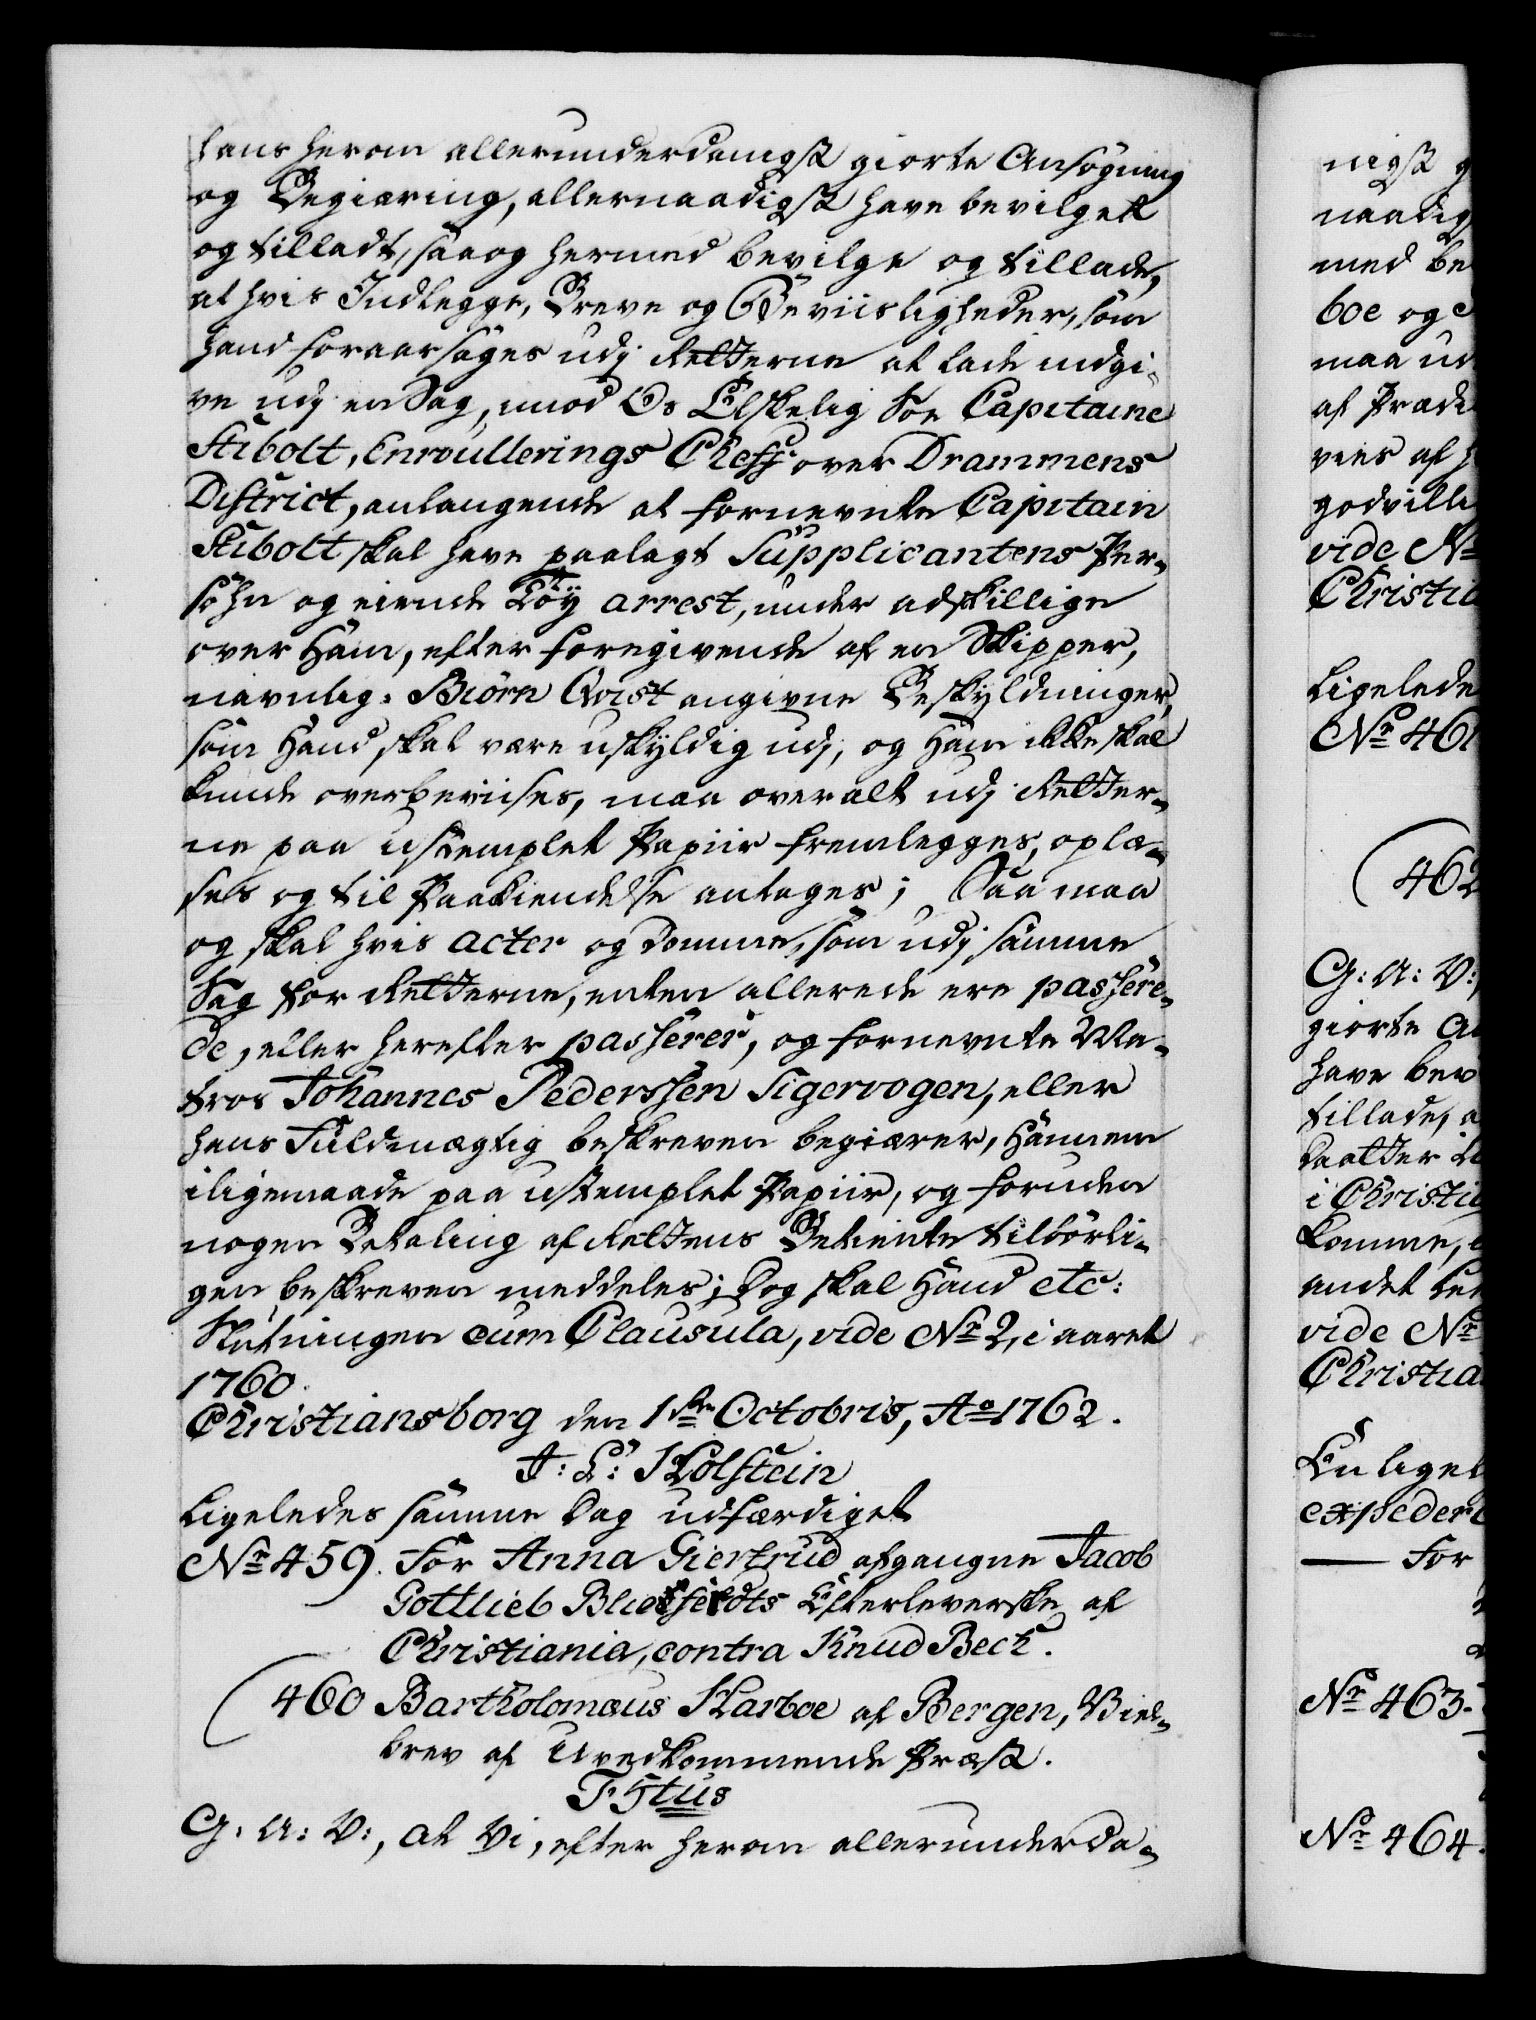 hans herom allerunderdanigst giorte Ansøgning
og Begiæring, allernaadigst have bevilget
og tilladt, saa og hermed bevilge og tillade,
at hvis Indlegge, Breve og Beviisligheder, som
hand foraarsages udj Retterne at lade indgi-
ve udj en Sag, imod Os Elskelig Hr Capitaine
Stibolt, Enroullerings Cheff over Drammens
District, anlangende at fornevnte Capitain
Stibolt skal have paalagt Supplicantens Per-
sohn og eiende Töÿ arrest, under adskillige
over Ham, efter foregivende af en Skipper,
navnlig: Biörn Qvist angivne Beskyldninger,
som Hand skal være uskyldig udj, og Ham ikke skal
kunde overbeviises, maa over alt udj Retter-
ne paa ustemplet Papiir fremlegges, oplæ-
ses og til Paakiendelse antages; Saa maa
og skal hvis acter og Domme, som udj samme
Sag for Retterne, enten allerede ere passere-
de, eller herefter passerer, og fornevnte Ma-
tros Johannes Pederssen Sigervogen, eller
hans Fuldmægtig beskreven begiærer, Hannem
iligemaade paa ustemplet Papiir, og foruden
nogen Betaling af Rettens Betiente tilbörli-
gen beskreven meddeles; Dog skal Hand etc:
Slutningen cum Clausula, vide No 2, i aaret
1760.
Christiansborg den 1ste Octobris, Ao 1762.
J: L: Holstein
Ligeledes samme Dag udfærdiget
No 459. For Anna Giertrud afgangne Jacob
Gottlieb Efterleverske af
Christiania, contra Knud Beck.
460 Bartholomæus Harboe af Bergen, Viel-
brev af Uvedkommende Præst.
G: A: V:, at Vi, efter herom allerunderda-
nigst
naadig
med be
boe og
maa ud
af Præd
godvilli
vide No
Christi
Ligelede
No 461
462
G: A: V:
giorte A
have bev
tillade, a
i Christi
komme,
andet
vide No
Christia
expeder
For
No 463.
No 464.